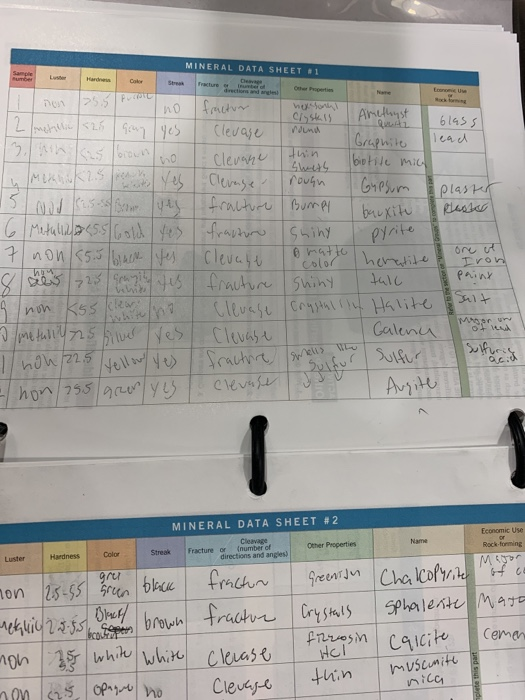 MINERAL DATA SHEET #1
Sample number Luster Hardness Color Streak Fracture or Cleavage (number of directions and angles) Other Properties Name Economic Use or Rock-forming
non >5.5 no fracture hexagonal crystals Amethyst quartz glass
2 metallic <2.5 gray yes Clevage round Graphite lead
3. <2.5 brown no Clevage thin sheets biotite mica
4 Metallic <2.5 yes Clevage rough Gypsum plaster
5 yes fracture Bumpy bauxite
6 Metallic <5.5 Gold yes fracture Shiny pyrite
7 non <5.5 black yes Clevage matte color hematite ore of Iron
8 non yes fracture Shiny talc paint
9 non <55 clear white no Clevage Crystalline Halite Salt
metallic 725 Silver yes Clevage Galena Major ore of lead
1 non 225 yellow yes fracture smells like Sulfur Sulfur Sulfuric acid
non 755 green yes Clevage Augite
MINERAL DATA SHEET #2
Luster Hardness Color Streak Fracture or Cleavage (number of directions and angles) Other Properties Name Economic Use or Rock-forming
non 2.5-5.5 green black fracture greenish Chalcopyrite Major of
Metallic 2.5-5.5 Black/ brown fracture Crystals Sphalerite Majo
non white white Clevage HCl Calcite cemen
non <2.5 opaque no Clevage thin muscovite mica